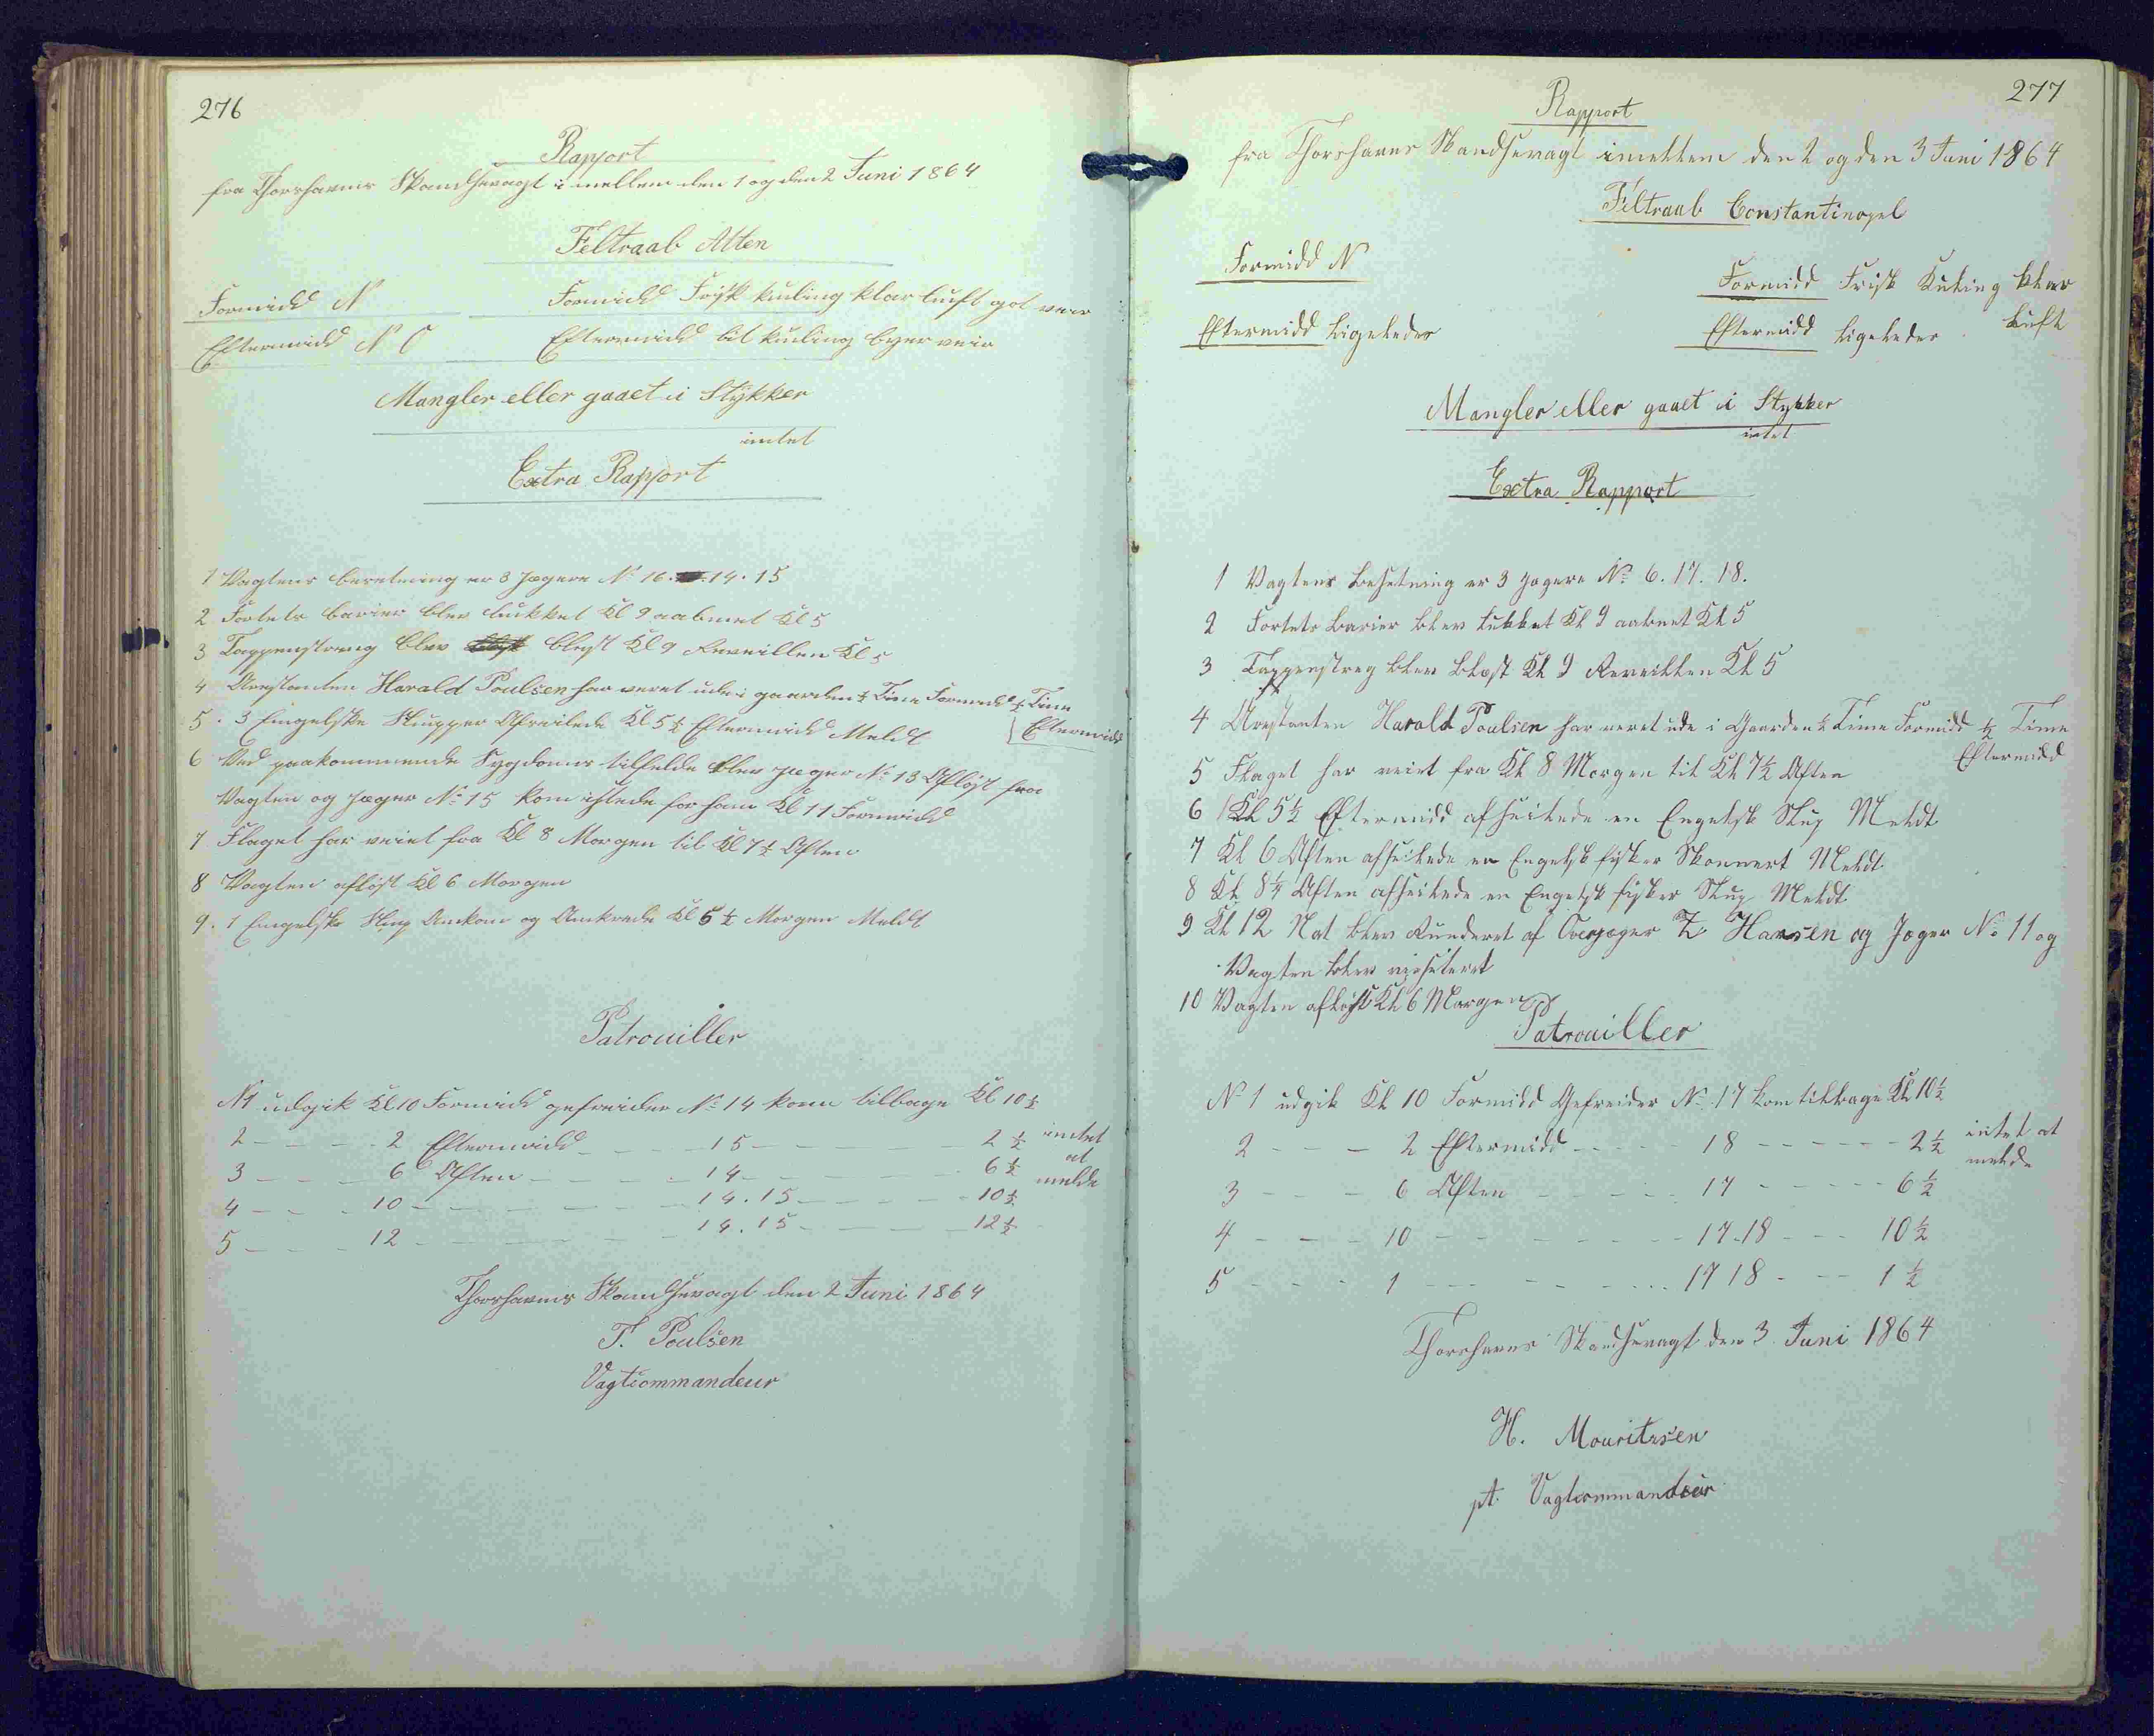 276
Rapport
fra Thorshavns Skandsevagt imellem den 1 og den 2 Juni 1864
Feltraab Alten
Formidd N
Formidd Frisk kuling klar luft got veir
Eftermidd N O
Eftermidd lit kuling byer veir
Mangler eller gaaet i Stykker
intet
Extra Rapport
1 Vagtens besetning er 3 Jægere No 16. 14. 15
2 Fortets barier blev lukket Kl 9 aabnet Kl 5
3 Tappenstreg blev blest Kl 9 Reveillen Kl 5
4 Arrestanten Harald Poulsen har veret ude i gaarden ½ Time Formidd ½ Time
Eftermidd
5. 3 Engelske Slupper Afseilede Kl 5½ Eftermidd Meldt
6 Ved paakommende Sygdoms tilfelde blev Jæger No 13 Afløst fra
Vagten og Jæger No 15 kom istede for ham Kl 11 Formidd
7 Flaget har veiet fra Kl 8 Morgen til Kl 7½ Aften
8 Vagten afløst Kl 6 Morgen
9. 1 Engelske Slup Ankom og Ankrede Kl 5½ Morgen Meldt
Patrouiller
N1 udgik Kl 10 Formidd gefreider No 14 kom tilbage Kl 10½
2 - - - - 2 Eftermidd - - - - 15 - - - 2½ intet
3 - - - 6 Aften - - - - 14 - - - - 6½ at
4 - - - 10 - - - - - - 14. 15 - - - - 10½ melde
5 - - - 12 - - - - - - 14. 15 - - - - 12½
Thorshavns Skandsevagt den 2 Juni 1864
T. Poulsen
Vagtcommandeur
277
Rapport
fra Thorshavns Skandsevagt imellem den 2 og den 3 Juni 1864
Feltraab Constantinopel
Formidd N
Formidd Frisk Kuling klar
Luft
Eftermidd ligeledes
Eftermidd ligeledes
Mangler eller gaaet i Stykker
intet
Extra Rapport
1 Vagtens Besetning er 3 Jægere No 6. 17. 18.
2 Fortets Barier blev lukket Kl 9 aabnet Kl 5
3 Tappenstreg blev blæst Kl 9 Reveillen Kl 5
4 Arrestanten Harald Poulsen har veret ude i Gaarden ½ Time Formidd ½ Time
Eftermidd
5 Flaget har veiet fra Kl 8 Morgen til Kl 7½ Aften
6 Kl 5½ Eftermidd afseilede en Engelsk Slup Meldt
7 Kl 6 Aften afseilede en Engelsk fisker Skonnert Meldt
8 Kl 8¼ Aften afseilede en Engelsk fisker Slup Meldt
9 Kl 12 Nat blev Runderet af Overjæger Hansen og Jæger No 11 og
Vagten blev visiteret
10 Vagten afløst Kl 6 Morgen
Patrouiller
No 1 udgik Kl 10 Formidd Gefreider No 17 kom tilbage Kl 10½
2 - - - 2 Eftermidd - - - - 18 - - - - - 2½ intet at
melde
3 - - - 6 Aften - - - - 17 - - - - - 6½
4 - - - 10 - - - - - - - 17.18 - - - 10½
5 - - - 1 - - - - - - - 17 18 - - - 1½
Thorshavns Skandsevagt den 3 Juni 1864
H. Mouritzsen
pt. Vagtcommandeur